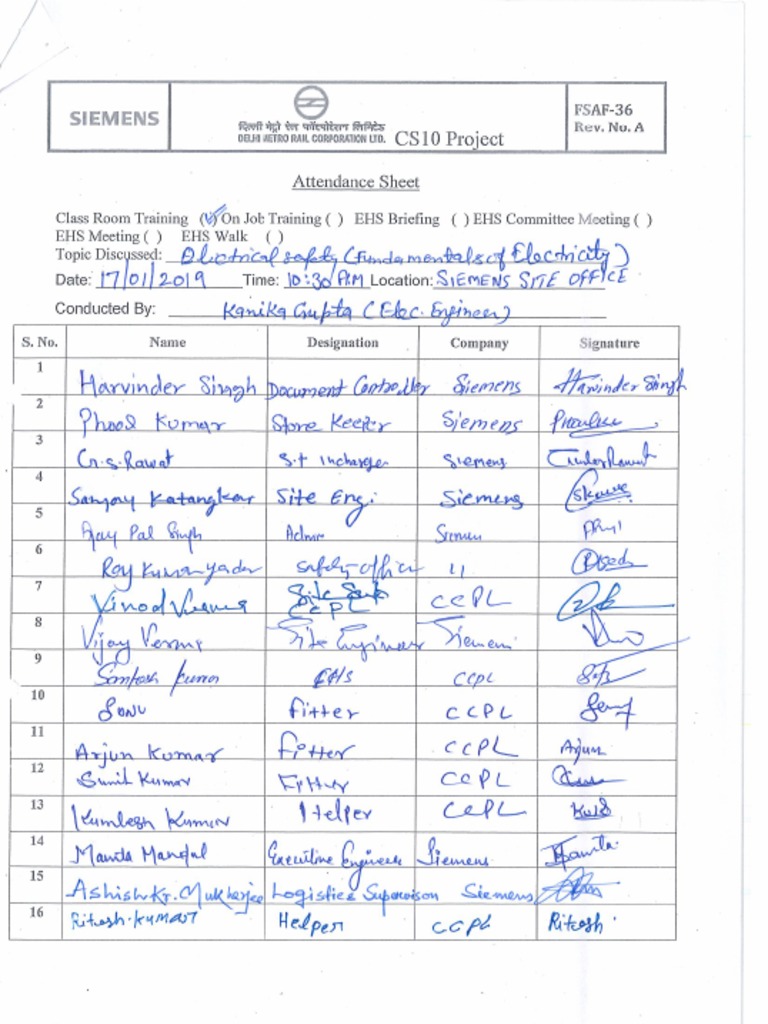 SIEMENS
दिल्ली मेट्रो रेल कॉरपोरेशन लिमिटेड
DELHI METRO RAIL CORPORATION LTD. CS10 Project
FSAF-36
Rev. No. A
Attendance Sheet
Class Room Training (✓) On Job Training ( ) EHS Briefing ( ) EHS Committee Meeting ( )
EHS Meeting ( ) EHS Walk ( )
Topic Discussed: Electrical safety (Fundamentals of Electricity)
Date: 17/01/2019 Time: 10:30 Location: SIEMENS SITE OFFICE
Conducted By: Kanika Gupta (Elec. Engineer)
S. No. Name Designation Company Signature
1 Harvinder Singh Document Controller Siemens Harvinder Singh
2 Phool Kumar Store Keeper Siemens
3 G.S. Rawat S.t Incharge Siemens
4 Sanjay Katangkar Site Eng. Siemens
5 Ajay Pal Singh Admn Siemens
6 Roy Kumar yadav safety-officer 11
7 Vinod Verma Site CCPL CCPL
8 Vijay Verma Site Engineer Siemens
9 Santosh Kumar EHS CCPL
10 SONU fitter CCPL
11 Arjun Kumar fitter CCPL Arjun
12 Sunil Kumar Fitter CCPL
13 Kumlesh Kumar Helper CCPL
14 Mamta Mandal Executive Engineer Siemens Mamta
15 Ashish Kr. Mukherjee Logistics Supervison Siemens
16 Ritesh Kumar Helper CCPL Ritesh